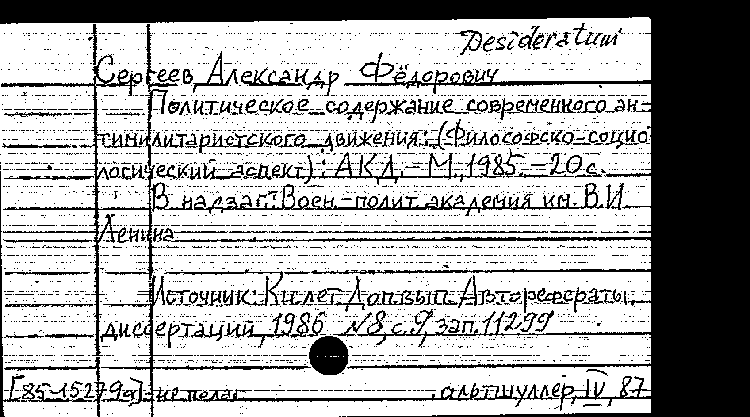 Desideratum
Сергеев, Александр Фёдорович
Политическое содержание современного ан-
тимилитаристского движения: (Философско-социо
логический аспект): АКД. - М., 1985. - 20 с.
В надзаг.: Воен.-полит. академия им. В.И.
Ленина
Источник: Кн. лет. Доп. вып. Авторефераты
диссертаций, 1986 N8, с. 9, зап. 11299
[85-15279а] не полаг
альтшуллер, IV, 87